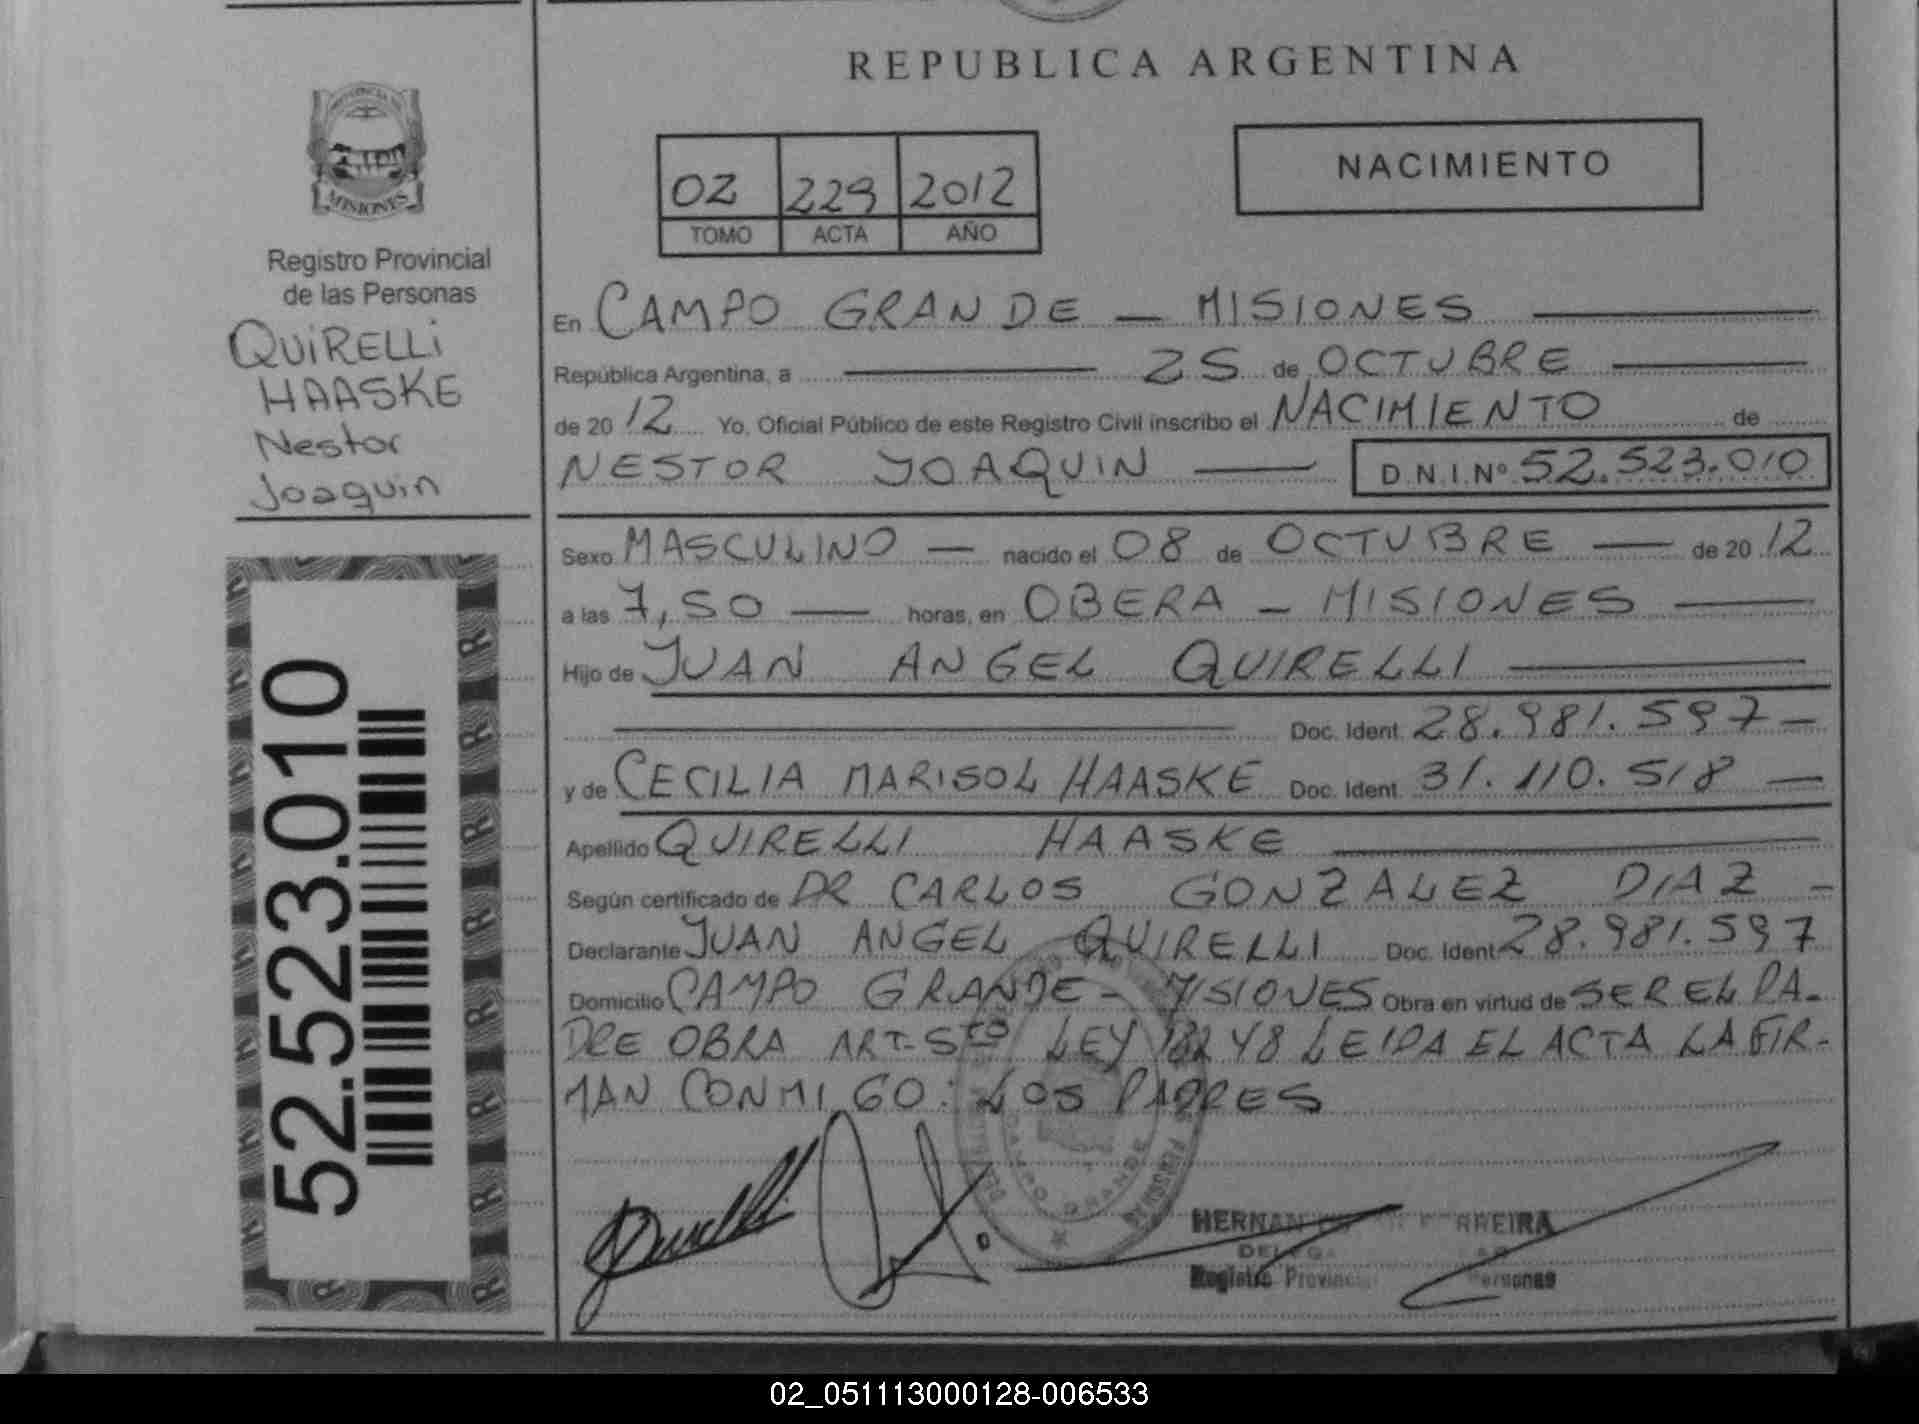 REPUBLICA ARGENTINA
PROVINCIA DE
MISIONES
Registro Provincial
de las Personas
QUIRELLI
HAASKE
Nestor
Joaquin
52.523.010
02 229 2012
TOMO ACTA AÑO
NACIMIENTO
En CAMPO GRANDE — MISIONES
República Argentina, a 25 de OCTUBRE
de 2012 Yo, Oficial Público de este Registro Civil inscribo el NACIMIENTO de
NESTOR JOAQUIN — D.N.I.Nº 52.523.010
Sexo MASCULINO — nacido el 08 de OCTUBRE — de 2012
a las 7,50 — horas, en OBERA — MISIONES
Hijo de JUAN ANGEL QUIRELLI
Doc. Ident. 28.981.597 —
y de CECILIA MARISOL HAASKE Doc. Ident. 31.110.518 —
Apellido QUIRELLI HAASKE
Según certificado de DR CARLOS GONZALEZ DIAZ —
Declarante JUAN ANGEL QUIRELLI Doc. Ident. 28.981.597
Domicilio CAMPO GRANDE — MISIONES Obra en virtud de SER EL PA-
DRE OBRA ART-5to LEY 18248 LEIDA EL ACTA LA FIR-
MAN CONMIGO: LOS PADRES
CAMPO GRANDE
HERNAN
Registro Provincial Personas
02_051113000128-006533